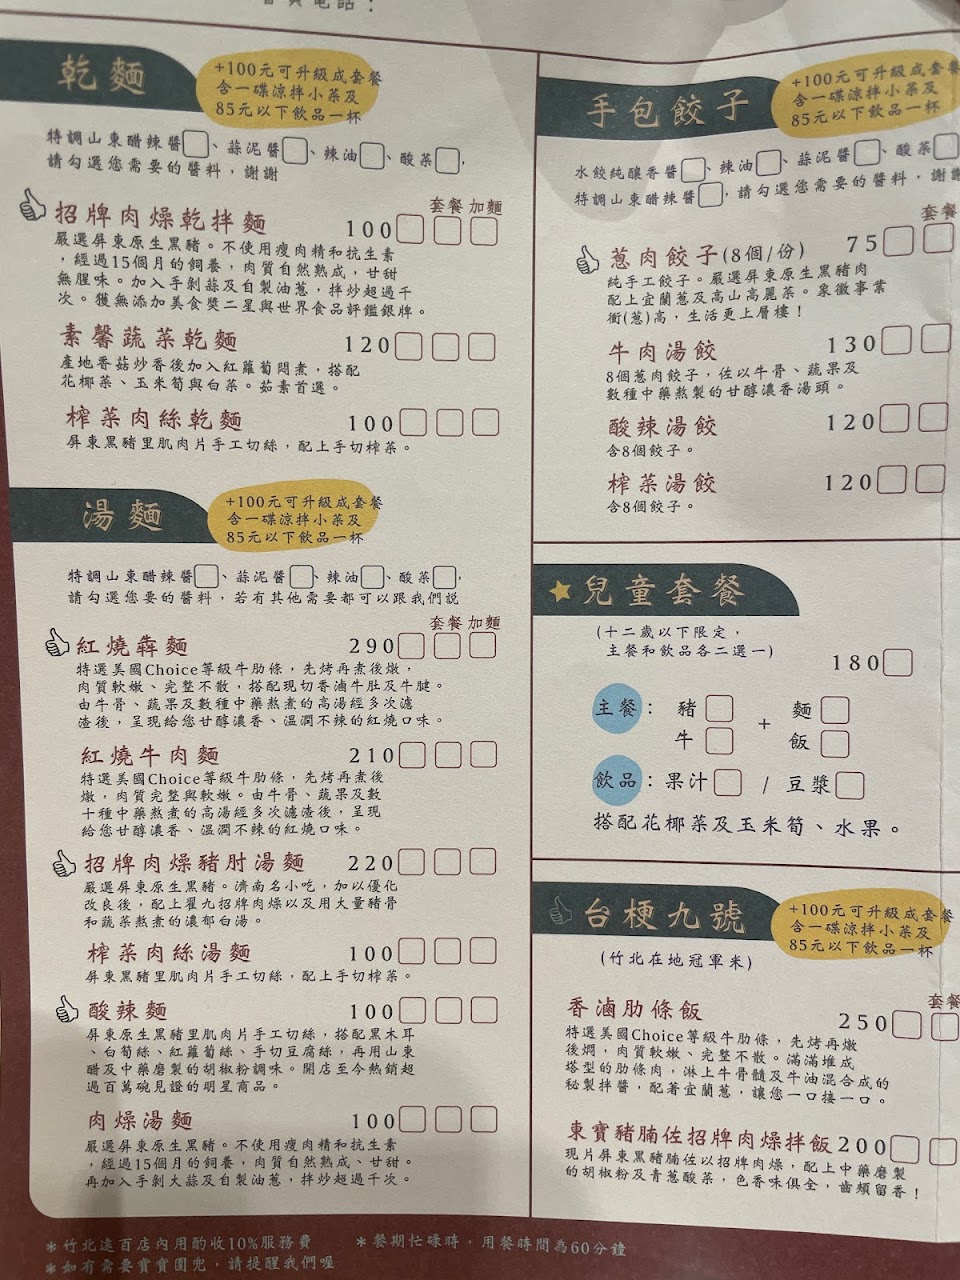 乾麵
+100元可升級成套餐
含一碟涼拌小菜及
85元以下飲品一杯
特調山東醋辣醬、蒜泥醬、辣油、酸菜,
請勾選您需要的醬料,謝謝
套餐 加麵
招牌肉燥乾拌麵 100
嚴選屏東原生黑豬。不使用瘦肉精和抗生素
,經過15個月的飼養,肉質自然熟成,甘甜
無腥味。加入手剝蒜及自製油蔥,拌炒超過千
次。獲無添加美食獎二星與世界食品評鑑銀牌。
素馨蔬菜乾麵 120
產地香菇炒香後加入紅蘿蔔悶煮,搭配
花椰菜、玉米筍與白菜。茹素首選。
榨菜肉絲乾麵 100
屏東黑豬里肌肉片手工切絲,配上手切榨菜。
湯麵
+100元可升級成套餐
含一碟涼拌小菜及
85元以下飲品一杯
特調山東醋辣醬、蒜泥醬、辣油、酸菜,
請勾選您要的醬料,若有其他需要都可以跟我們說
套餐 加麵
紅燒犇麵 290
特選美國Choice等級牛肋條,先烤再煮後燉,
肉質軟嫩、完整不散,搭配現切香滷牛肚及牛腱。
由牛骨、蔬果及數種中藥熬煮的高湯經多次濾
渣後,呈現給您甘醇濃香、溫潤不辣的紅燒口味。
紅燒牛肉麵 210
特選美國Choice等級牛肋條,先烤再煮後
燉,肉質完整與軟嫩。由牛骨、蔬果及數
十種中藥熬煮的高湯經多次濾渣後,呈現
給您甘醇濃香、溫潤不辣的紅燒口味。
招牌肉燥豬肘湯麵 220
嚴選屏東原生黑豬。濟南名小吃,加以優化
改良後,配上翟九招牌肉燥以及用大量豬骨
和蔬菜熬煮的濃郁白湯。
榨菜肉絲湯麵 100
屏東黑豬里肌肉片手工切絲,配上手切榨菜。
酸辣麵 100
屏東原生黑豬里肌肉片手工切絲,搭配黑木耳
、白筍絲、紅蘿蔔絲、手切豆腐絲,再用山東
醋及中藥磨製的胡椒粉調味。開店至今熱銷超
過百萬碗見證的明星商品。
肉燥湯麵 100
嚴選屏東原生黑豬。不使用瘦肉精和抗生素
,經過15個月的飼養,肉質自然熟成、甘甜。
再加入手剝大蒜及自製油蔥,拌炒超過千次。
手包餃子
+100元可升級成套餐
含一碟涼拌小菜及
85元以下飲品一杯
水餃純釀香醬、辣油、蒜泥醬、酸菜
特調山東醋辣醬,請勾選您需要的醬料,謝謝
套餐
蔥肉餃子(8個/份) 75
純手工餃子。嚴選屏東原生黑豬肉
配上宜蘭蔥及高山高麗菜。象徵事業
衝(蔥)高,生活更上層樓!
牛肉湯餃 130
8個蔥肉餃子,佐以牛骨、蔬果及
數種中藥熬製的甘醇濃香湯頭。
酸辣湯餃 120
含8個餃子。
榨菜湯餃 120
含8個餃子。
兒童套餐
(十二歲以下限定,
主餐和飲品各二選一) 180
主餐: 豬 + 麵
牛 飯
飲品:果汁 / 豆漿
搭配花椰菜及玉米筍、水果。
台梗九號
+100元可升級成套餐
含一碟涼拌小菜及
85元以下飲品一杯
(竹北在地冠軍米)
套餐
香滷肋條飯 250
特選美國Choice等級牛肋條,先烤再燉
後燜,肉質軟嫩、完整不散。滿滿堆成
塔型的肋條肉,淋上牛骨髓及牛油混合成的
秘製拌醬,配著宜蘭蔥,讓您一口接一口。
東寶豬腩佐招牌肉燥拌飯 200
現片屏東黑豬腩佐以招牌肉燥,配上中藥磨製
的胡椒粉及青蔥酸菜,色香味俱全,齒頰留香!
*竹北遠百店內用酌收10%服務費
*餐期忙碌時,用餐時間為60分鐘
*如有需要寶寶圍兜,請提醒我們喔